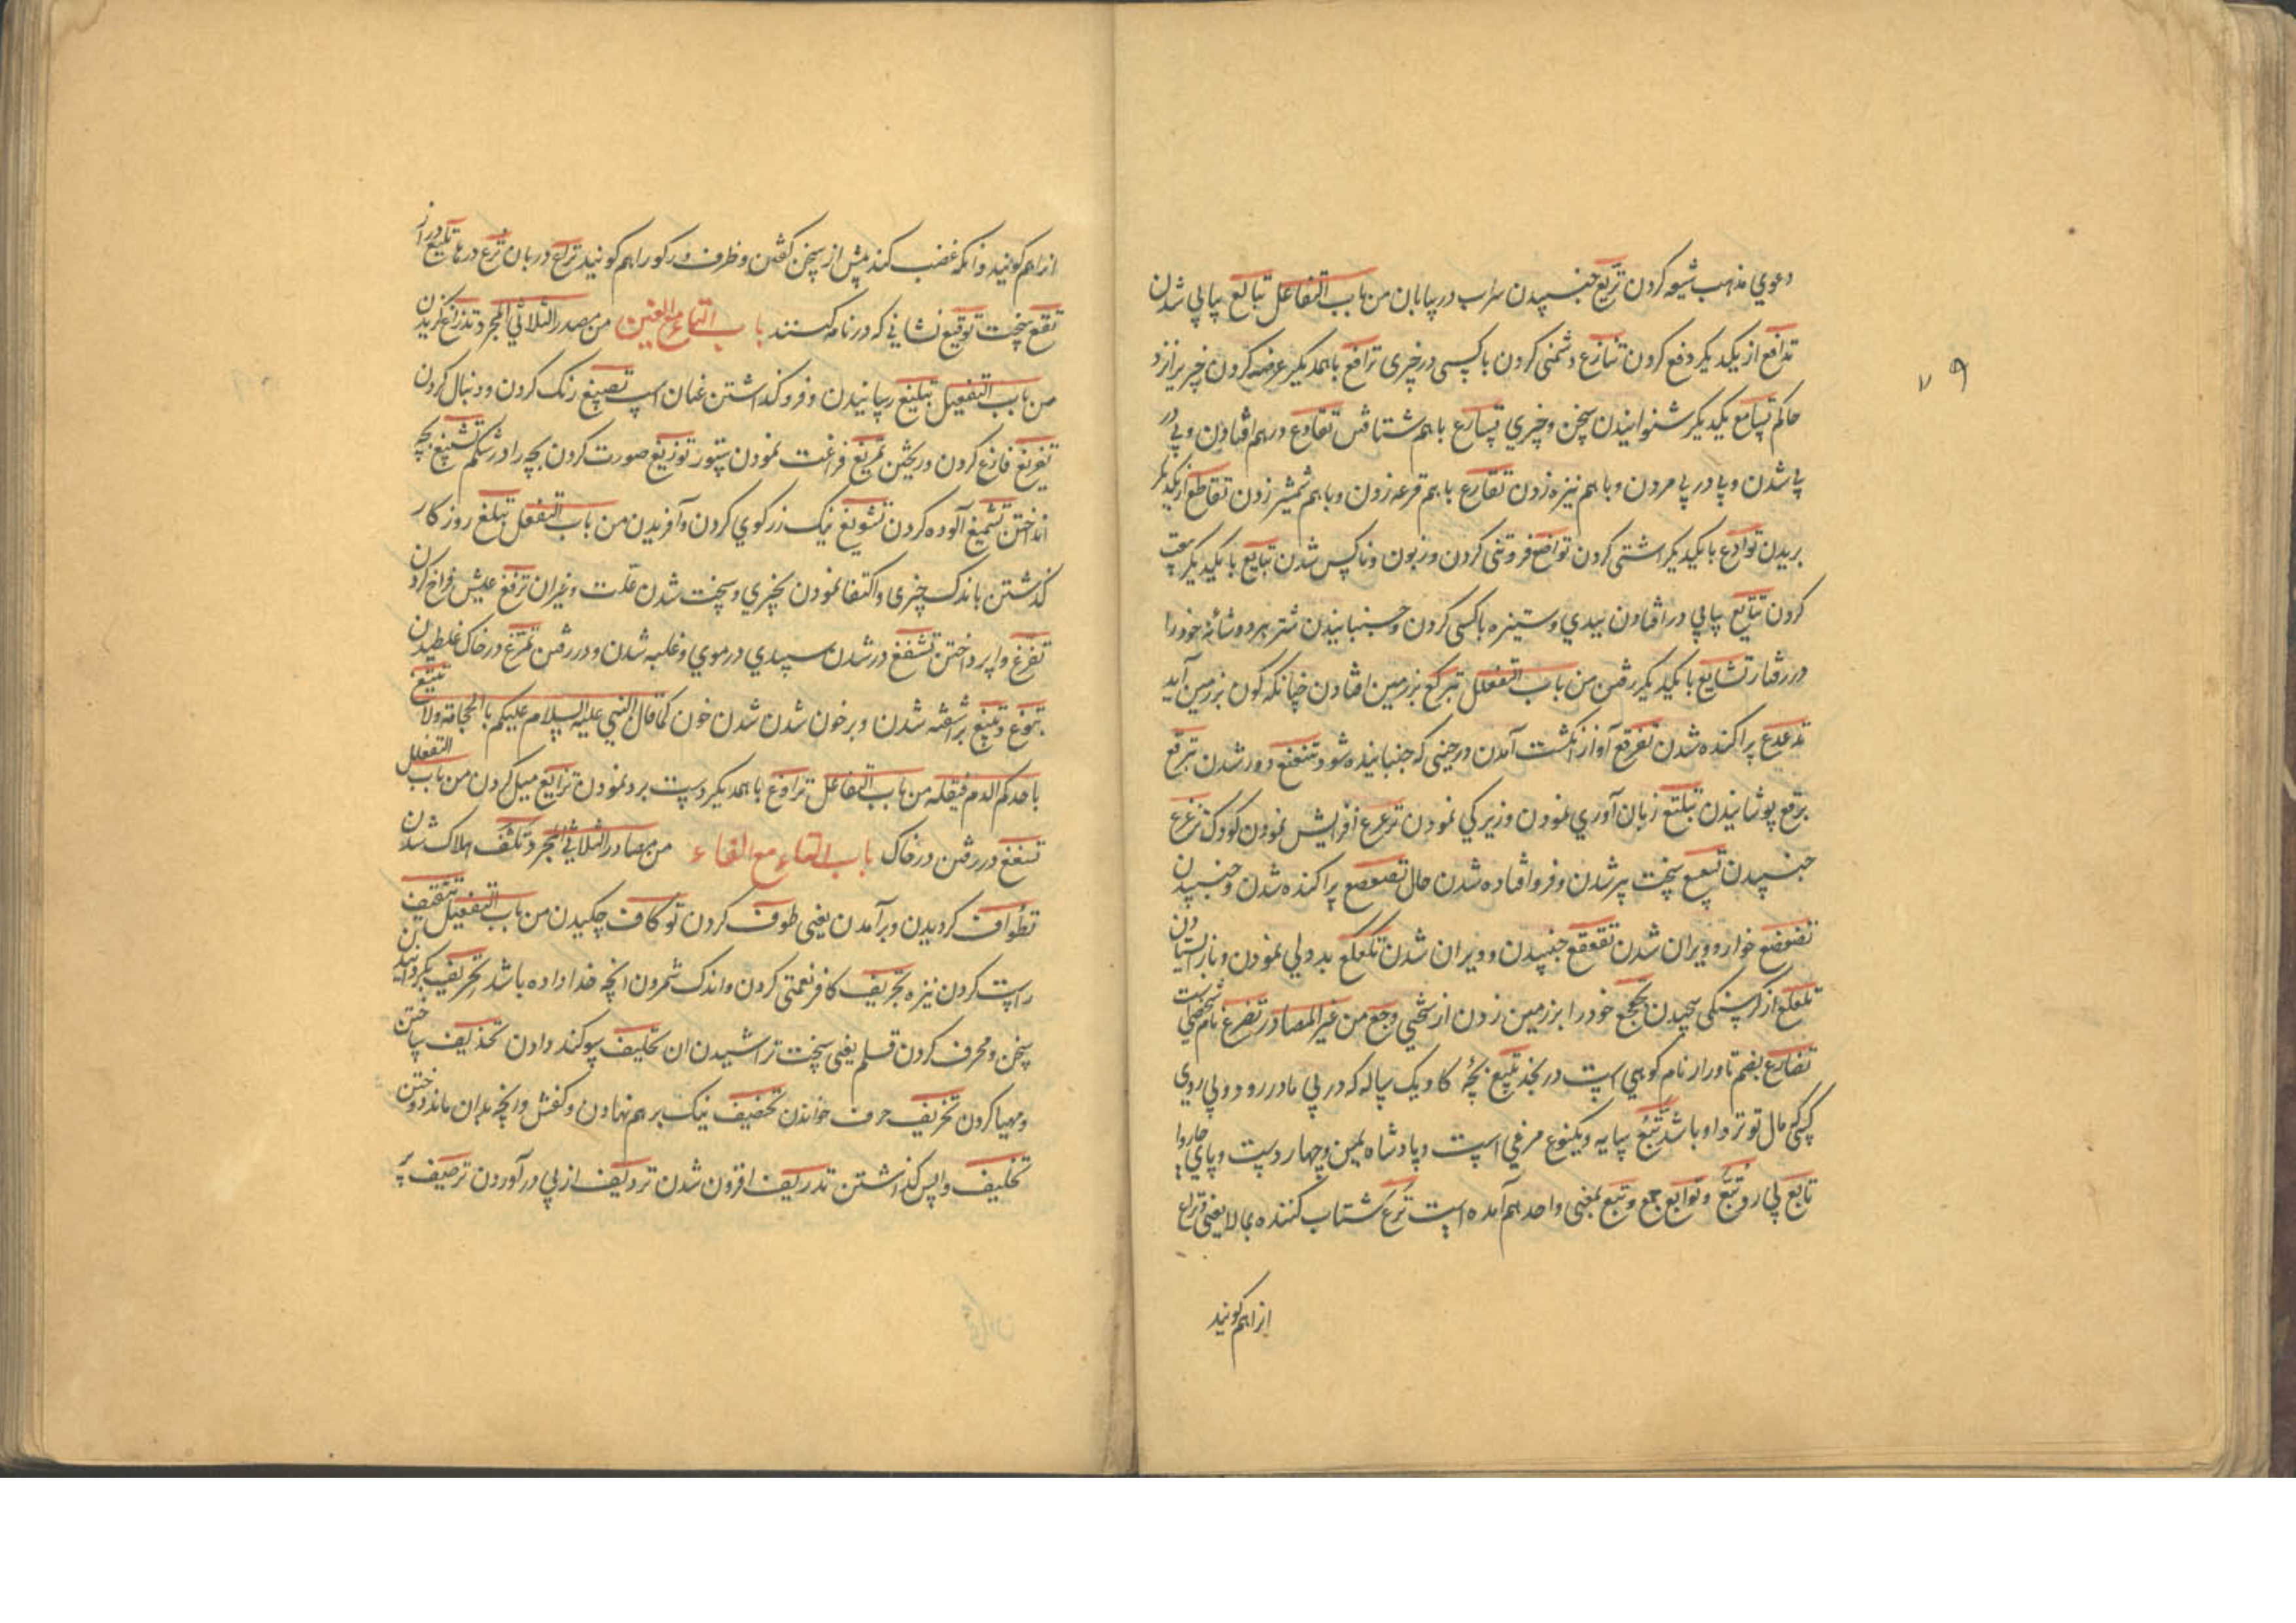 دعوي مذهب شیعه کردن تریع جنبیدن سراب در بیابان من باب التفاعل تتابع پیاپي شدن
تدافع از یکدیکر دفع کردن تنازع دشمنی کردن با کسی در چیزی ترافع با همدیکر عرضه کردن چیزیرا نزد
حاکم تسامع یکدیکر شنوانیدن سخن و چیزي تسارع با هم شتافتن تقادع در هم افتادن و پي در
پا شدن و پا در پا مردن و با هم نیزه زدن تقارع با هم قرعه زدن و با هم شمشیر زدن تقاطع از یکدیکر
بریدن توادع با یکدیکر اشتی کردن تواضع فروتنی کردن و زبون و ناکس شدن تبایع با یکدیکر بیعت
کردن تتایع پیاپي در افتادن ببدي و ستیزه با کسی کردن و جنبانیدن شتر هر دو شانهٔ خود را
در رفتار تشایع با یکدیکر رفتن من باب التفعلل تبرکع بزمین افتادن چنانکه کون بزمین آید
تذعذع پراکنده شدن تفرقع آواز انکشت آمدن در حینی که جنبانیده شود تنعنع دور شدن تبرقع
برقع پوشانیدن تبلتع زبان آوري نمودن و زیرکي نمودن ترعرع افزایش نمودن کودک تزعزع
جنبیدن تسعسع سخت پیر شدن و فرو افتاده شدن حال تصعصع پراکنده شدن و جنبیدن
تضعضع خوار و ویران شدن تقعقع جنبیدن و ویران شدن تکعکع بددلي نمودن و باز ایستادن
تلعلع از کرسنکی پیچیدن تجعجع خود را بر زمین زدن از سختي وجع من غیر المصادر تضرع نام شخصي است
تضارع بضم تا و را نام کوهي است در نجد تبیع بچهٔ کاو یک ساله که در پي مادر رود و پي روي
کسی که مال تو نزد او باشد تبع سایه و یکنوع مرغي است و پادشاه یمن و چهار دست و پاي چاروا
تابع پي رو تبع و توابع جمع و تبع بمعنی واحد هم آمده است ترع شتاب کننده بمالا یعنی و تراع
انرا هم کویند
انرا هم کویند و آنکه غضب کند پیش از سخن کفتن و ظرف پر کو را هم کویند تراع دربان ترع درها تلیع دراز
تقع سخت توقیع نشاني که در نامه کنند باب التاء مع الغین من مصدر الثلاثي المجرد تذراغ کزیدن
من باب التفعیل تبلیغ رسانیدن و فرو کذاشتن عنان اسپ تصبیغ رنک کردن و دنبال کردن
تفریغ فارغ کردن و ریختن تمریغ فراغت نمودن ستور توزیغ صورت کردن بچه را در شکم تشنیغ بچه
انداختن تشمیغ آلوده کردن تشویغ نیک زرکوي کردن و آفریدن من باب التفعل تبلغ روزکار
کذشتن باندک چیزی و اکتفا نمودن بچیزي و سخت شدن علت و غیر ان ترفغ عیش فراخ کردن
تفرغ واپرداختن تشفغ در شدن سپیدي در موي و غلبه شدن و در رفتن تمرغ در خاک غلطیدن
تبوغ و تبیغ برآشفته شدن و بر خون شدن شدن خون کما قال النبي علیه السلام علیکم بالحجامة ولا یتبیغ
باحدکم الدم فیقتله من باب التفاعل تراوغ با همدیکر دست برد نمودن تزایغ میل کردن من باب التفعلل
تسغسغ در رفتن در خاک باب التاء مع الفاء من مصادر الثلاثي المجرد تلف هلاک شدن
تطواف کردیدن و برآمدن یعنی طوف کردن توکاف چکیدن من باب التفعیل تثقیف
راست کردن نیزه تجریف کافر نعمتی کردن و اندک شمردن انچه خدا داده باشد تحریف بکردانیدن
سخن و محرف کردن قلم یعنی سخت تراشیدن ان تحلیف سوکند دادن تحذیف ساختن
و مهیا کردن تخریف حرف خواندن تخصیف نیک برهم نهادن و کفش و رانچه بدان ماند دوختن
تخلیف واپس کذاشتن تدریف افزون شدن تردیف از پي درآوردن ترصیف